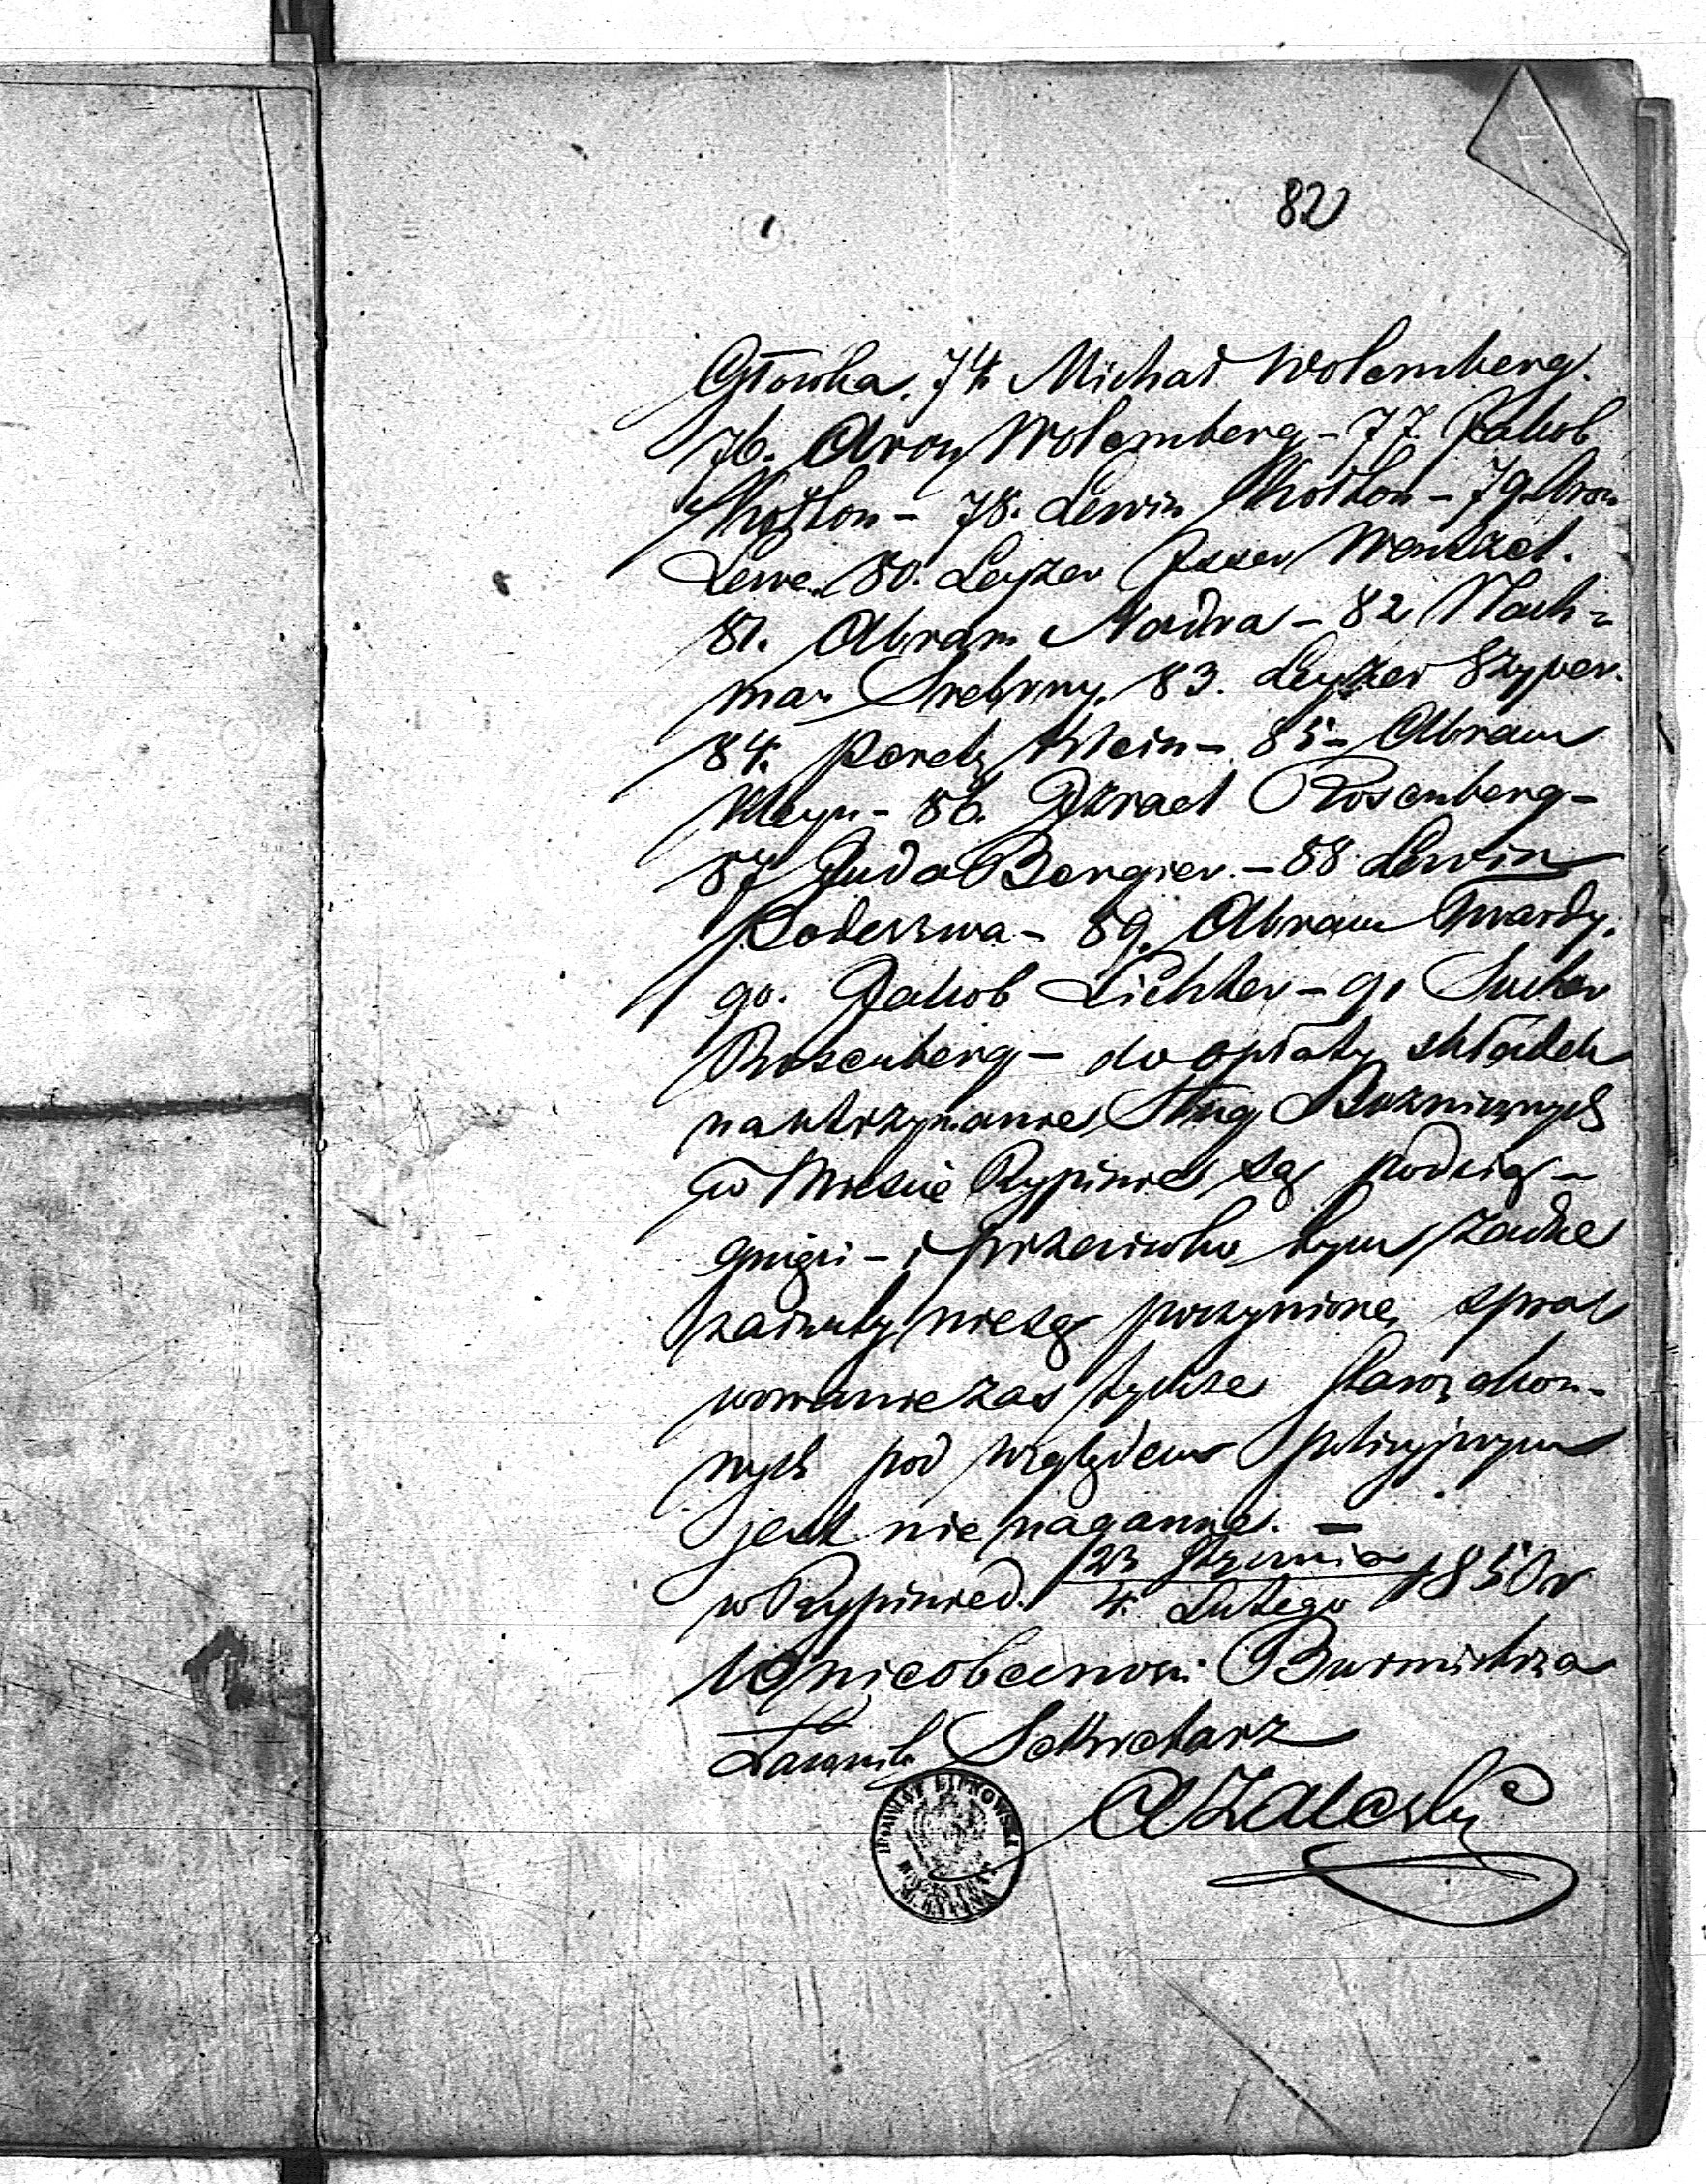 82
Główka. 74. Michał Wolemberg.
76. Aron Wolemberg - 77. Jakob
Kotton - 78. Lewin Kotton - 79. Aron
Lewe. 80. Leyzer Joser Wenczel.
81. Abram Nadra - 82 Nach=
man Srebrny. 83. Leyzer Szyper.
84. Peretz Klein - 85 - Abram
Kleyn - 86. Izrael Rosenberg -
87 Juda Bergier. - 88 Lewin
Podeszwa - 89. Abram Twardy.
90. Jakob Lichter - 91 Sucher
Rosenberg - do opłaty składek
na utrzymanie Sług Bożniczych
w Mieście Rypinie są podcią-
gnięci - i przeciwko tym żadne
zarzuty nie są poczynione, spra
wowanie zas tychże Starozakon-
nych pod względem policyjnym
jest nie naganne. -
w Rypinie d. 23 Stycznia / 4 Lutego 1850 r
W nieobecności Burmistrza
Ławnik Sekretarz
A Zaleski
POWIAT LIPNOWSKI
M. RYPINA